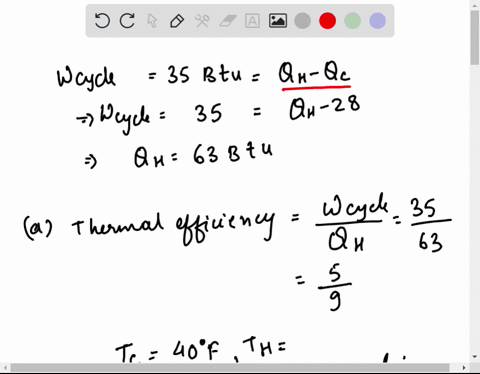 Wcycle = 35 Btu = QH-QC
=> Wcycle = 35 = QH-28
=> QH = 63 Btu
(a) Thermal efficiency = Wcycle/QH = 35/63
= 5/9
= 40°F, TH =